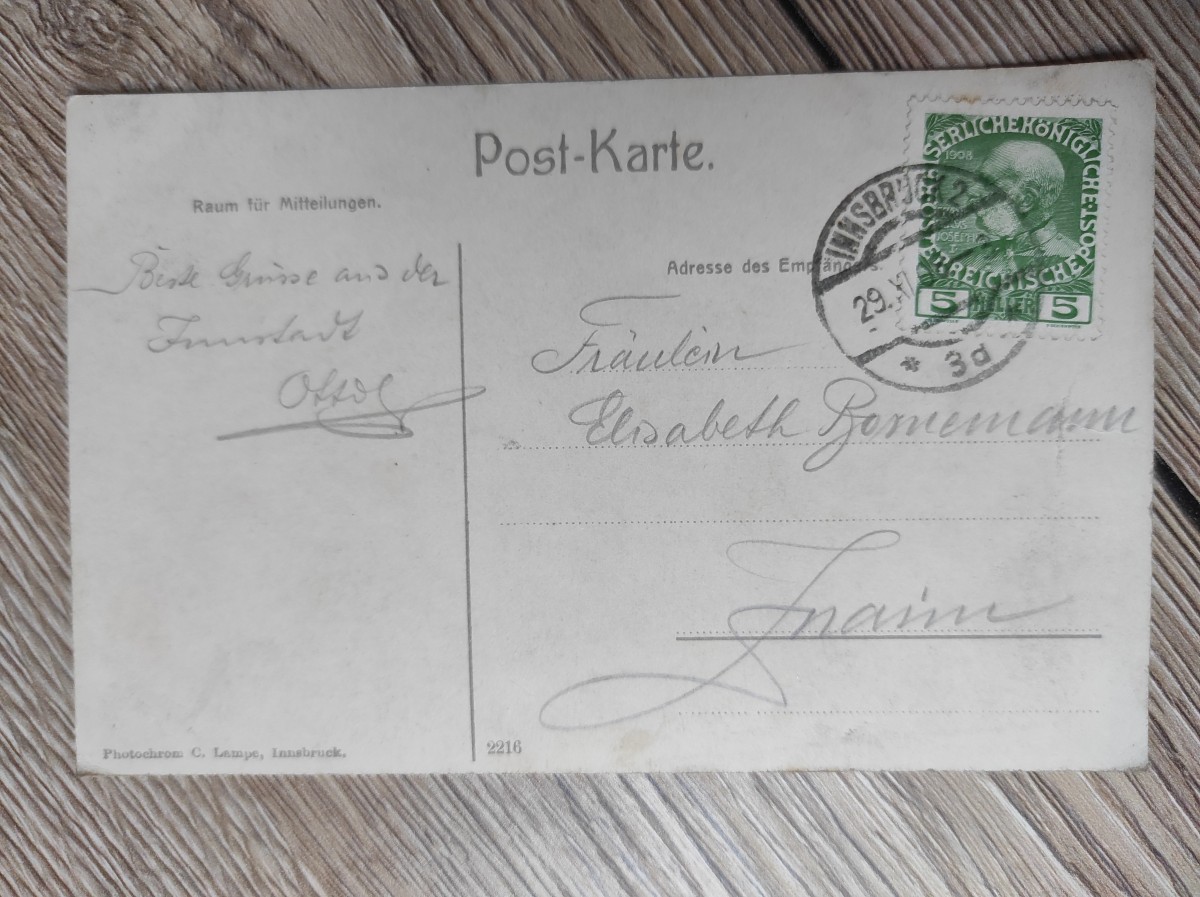 Post-Karte.
Raum für Mitteilungen.
Beste Grüsse aus der
Innstadt
Adresse des Empfängers.
Fräulein
Elisabeth Bornemann
Znaim
KAISERLICHE KÖNIGLICHE ÖSTERREICHISCHE POST
1908
JOSEPH I
5 HELLER 5
INNSBRUCK 2
29. XI
* 3d
Photochrom C. Lampe, Innsbruck.
2216